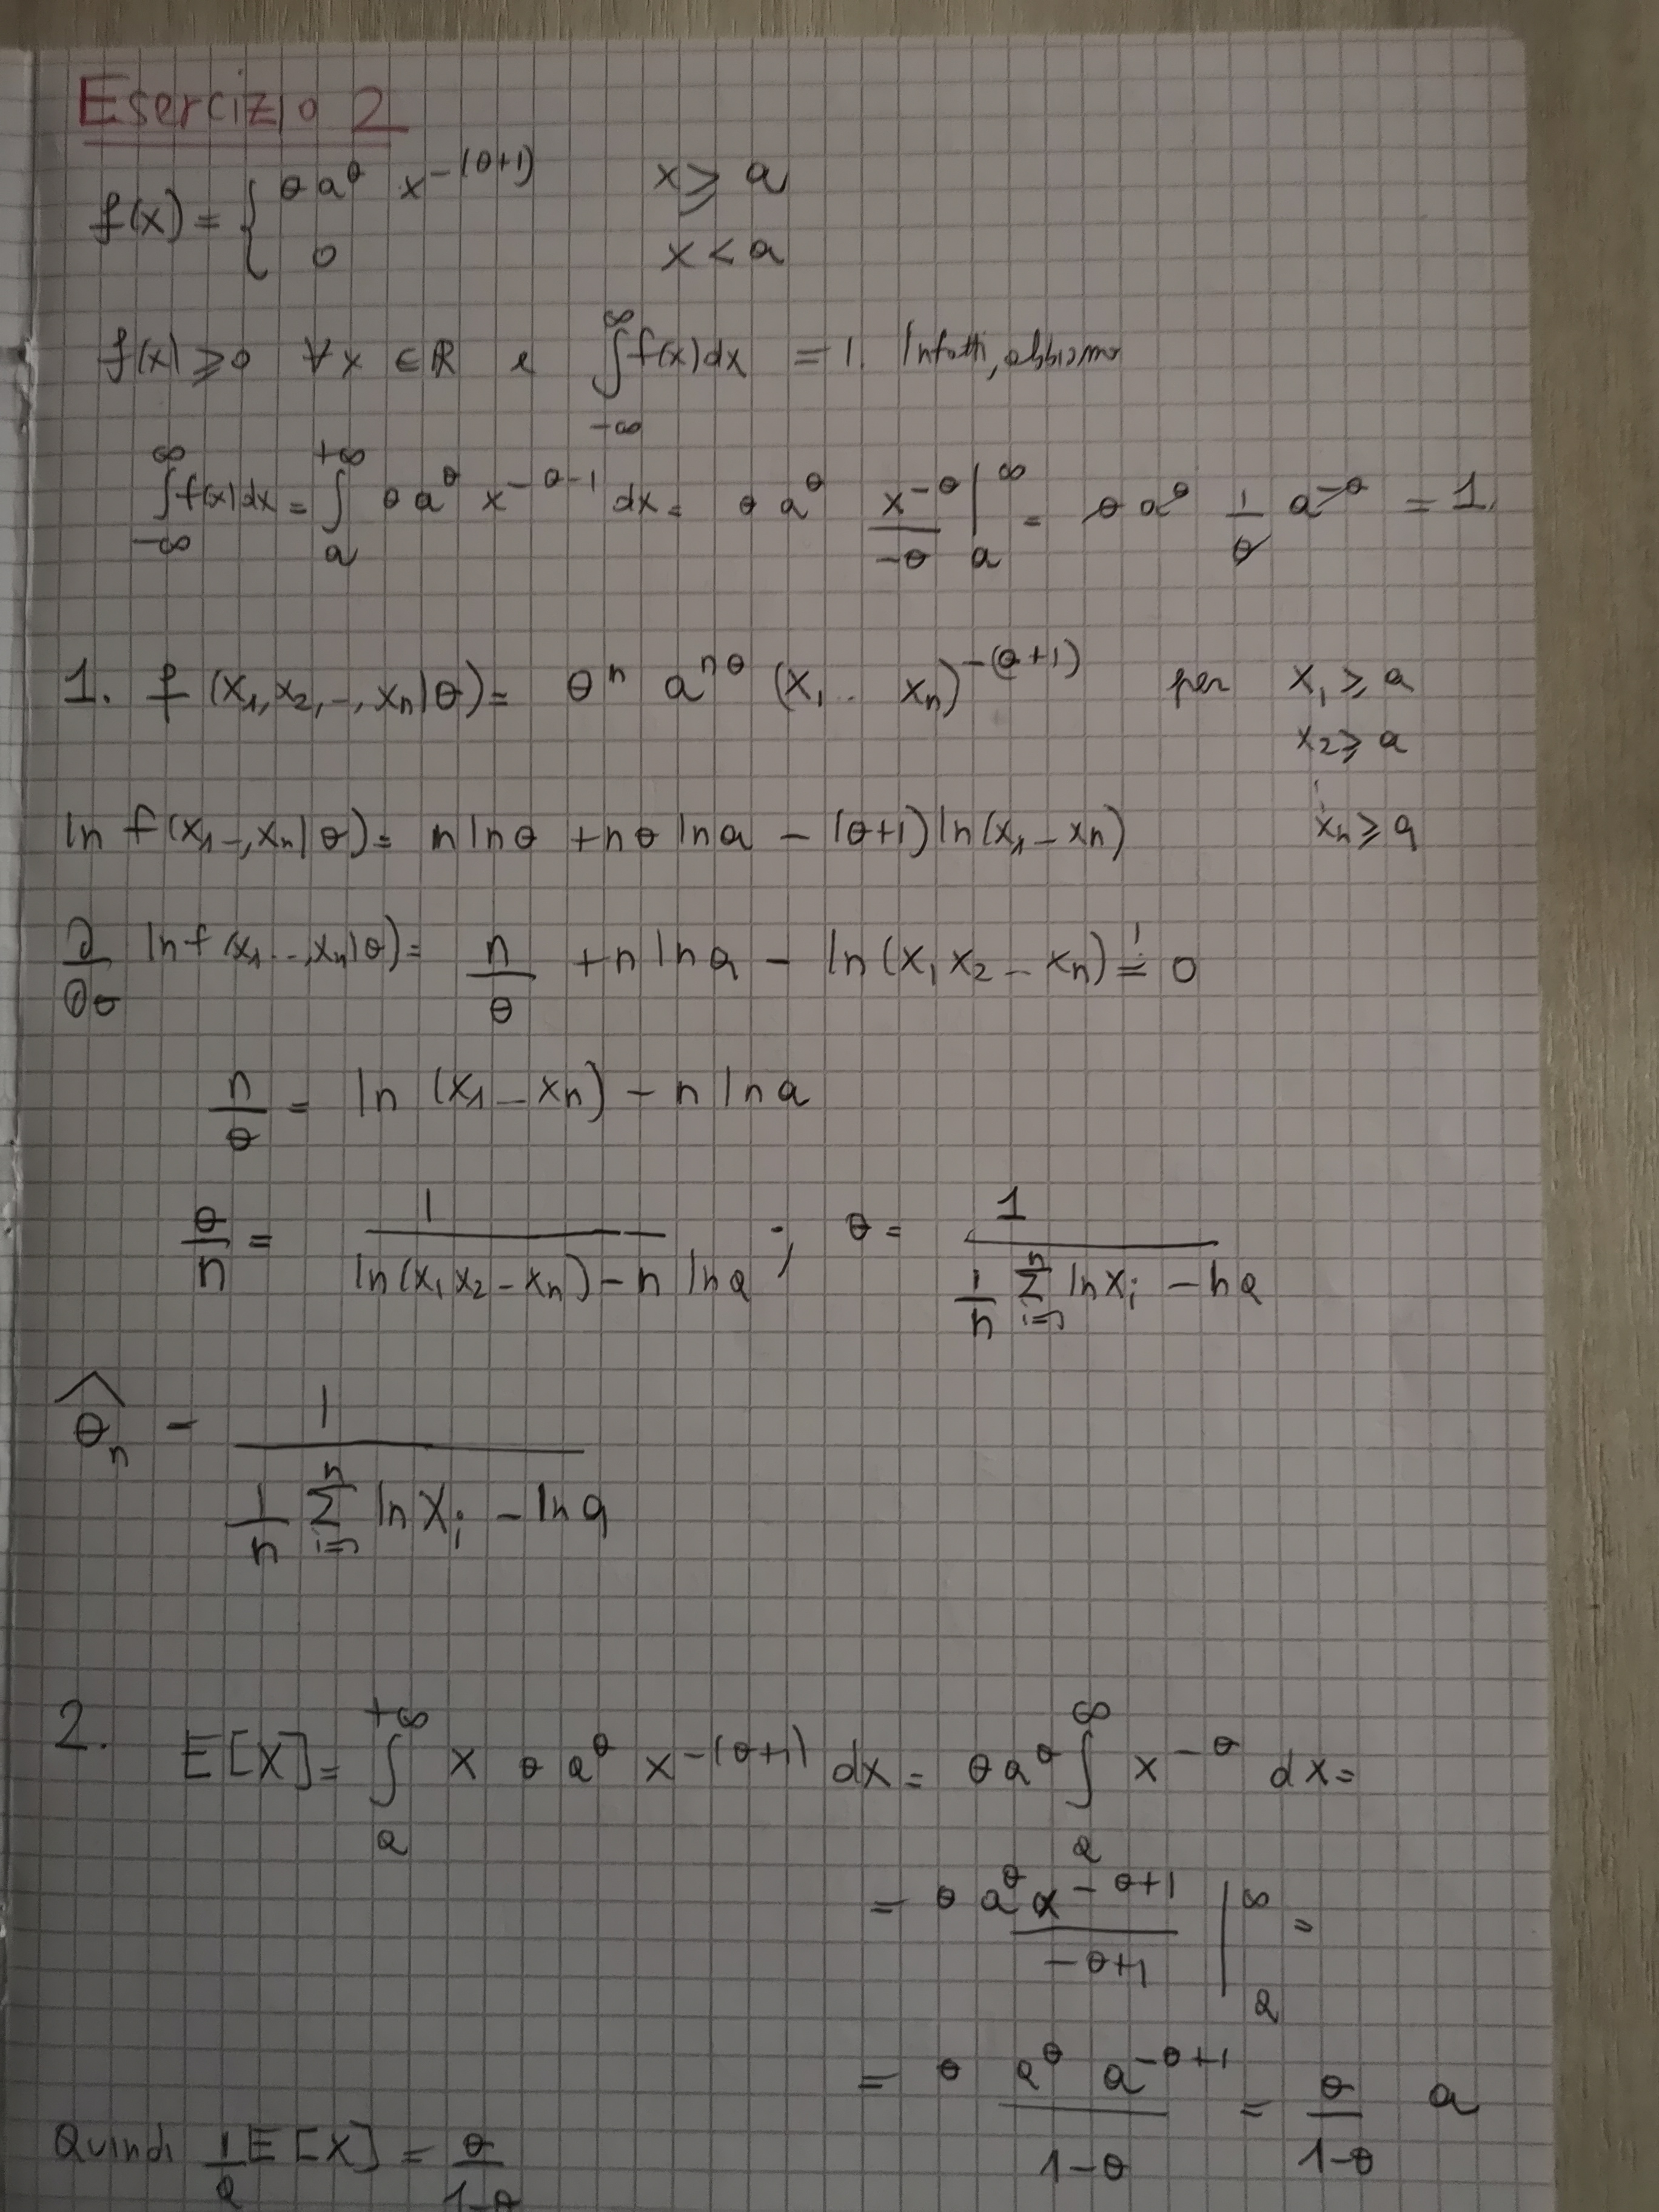 Esercizio 2
f(x) = { θ a^θ x^-(θ+1)   x ≥ a
0   x < a
f(x) ≥ 0 ∀x ∈ ℝ e ∫_{-∞}^{∞} f(x)dx = 1. Infatti, abbiamo
∫_{-∞}^{∞} f(x)dx = ∫_a^{+∞} θ a^θ x^{-θ-1} dx = θ a^θ x^{-θ}/-θ |_a^∞ = θ a^θ 1/θ a^{-θ} = 1.
1. f(x1, x2, -, xn|θ) = θ^n a^{nθ} (x1 .. xn)^{-(θ+1)} per x1 ≥ a
x2 ≥ a
⋮
xn ≥ a
ln f(x1 -, xn|θ) = n ln θ + nθ ln a - (θ+1) ln(x1 - xn)
∂/∂θ ln f(x1 .., xn|θ) = n/θ + n ln a - ln(x1 x2 - xn) =! 0
n/θ = ln (x1 - xn) - n ln a
θ/n = 1/(ln(x1 x2 - xn) - n ln a) ; θ = 1/(1/n Σ_{i=1}^n ln xi - ha)
θ̂n = 1/(1/n Σ_{i=1}^n ln Xi - ln a)
2. E[X] = ∫_a^{+∞} x θ a^θ x^{-(θ+1)} dx = θ a^θ ∫_a^∞ x^{-θ} dx =
= θ a^θ x^{-θ+1}/-θ+1 |_a^∞ =
= θ a^θ a^{-θ+1}/1-θ = θ/1-θ a
Quindi 1/a E[X] = θ/1-θ